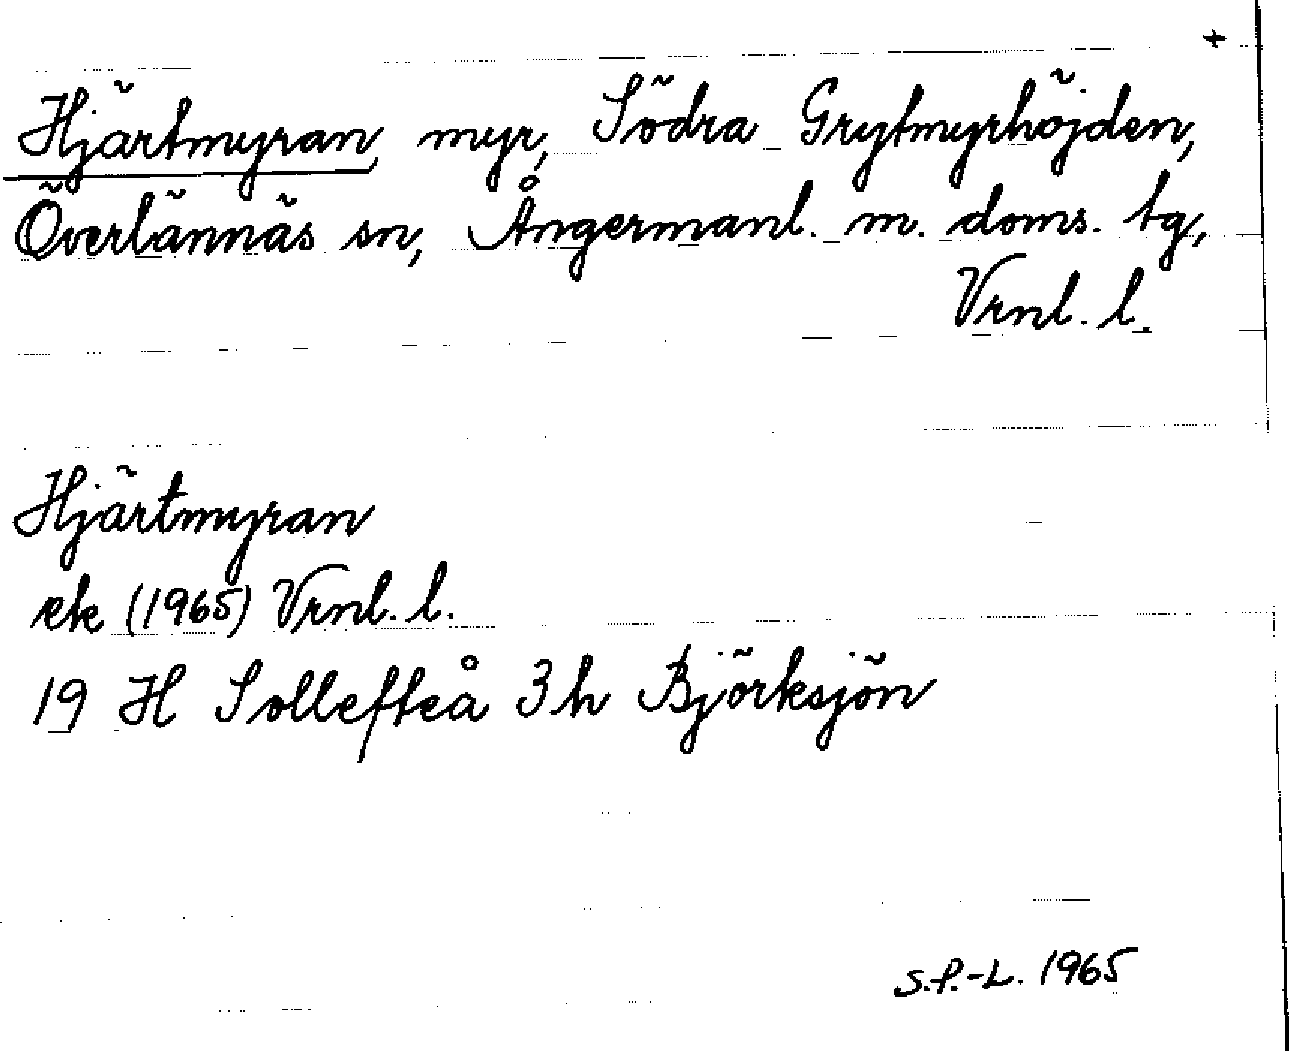 +
Hjärtmyran, myr, Södra Grytmyrhöjden,
Överlännäs sn, Ångermanl. m. doms. tg,
Vrnl. l.
Hjärtmyran
ek (1965) Vrnl. l.
19 H Sollefteå 3h Björksjön
S.P.-L. 1965